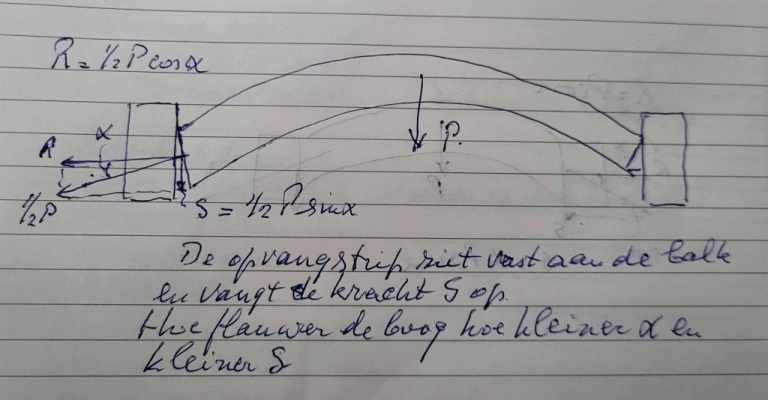 R = ½ P cos α
α
R
P.
½P
S = ½ P sin α
De opvangstrip ziet vast aan de balk
en vangt de kracht S op.
Hoe flauwer de boog hoe kleiner α en
kleiner S